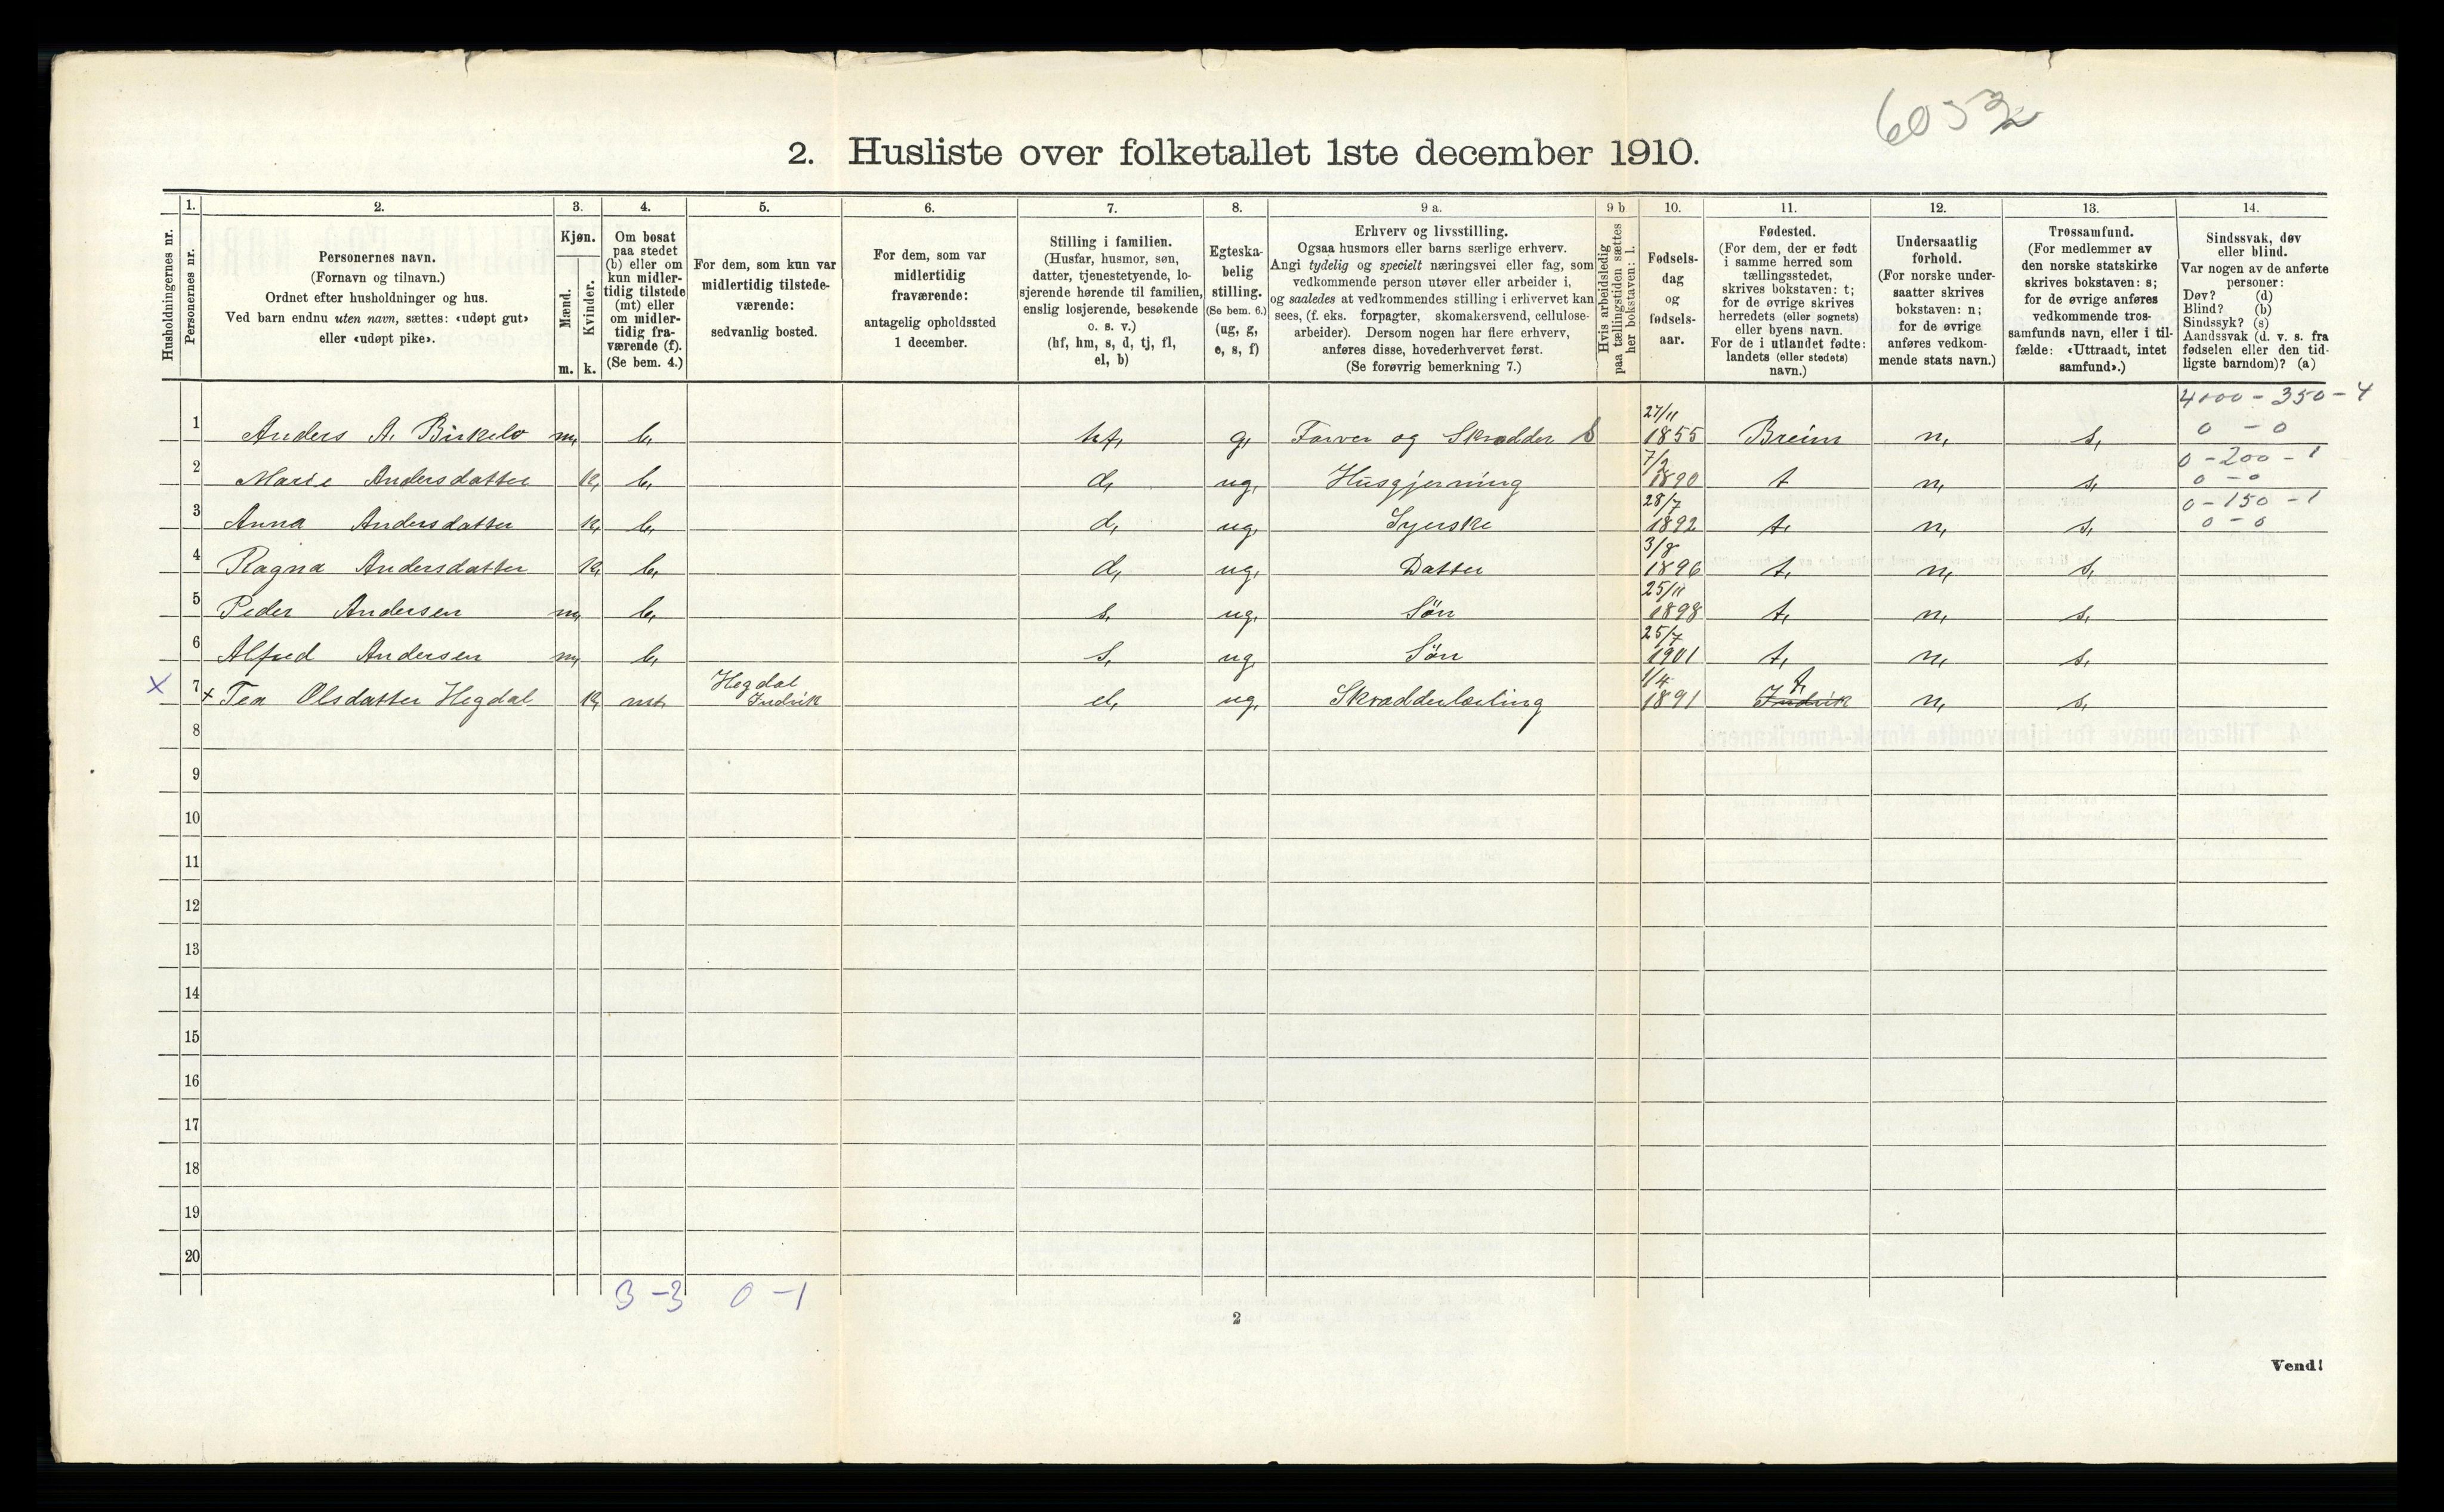 6032
2. Husliste over folketallet 1ste december 1910.
1. 2. 3. 4. 5. 6. 7. 8. 9 a. 9 b 10. 11. 12. 13. 14.
Husholdningernes nr.
Personernes nr.
Personernes navn.
(Fornavn og tilnavn.)
Ordnet efter husholdninger og hus.
Ved barn endnu uten navn, sættes: «udøpt gut»
eller «udøpt pike».
Kjøn.
Mænd.
Kvinder.
m. k.
Om bosat
paa stedet
(b) eller om
kun midler-
tidig tilstede
(mt) eller
om midler-
tidig fra-
værende (f).
(Se bem. 4.)
For dem, som kun var
midlertidig tilstede-
værende:
sedvanlig bosted.
For dem, som var
midlertidig
fraværende:
antagelig opholdssted
1 december.
Stilling i familien.
(Husfar, husmor, søn,
datter, tjenestetyende, lo-
sjerende hørende til familien,
enslig losjerende, besøkende
o. s. v.)
(hf, hm, s, d, tj, fl,
el, b)
Egteska-
belig
stilling.
(Se bem. 6.)
(ug, g,
e, s, f)
Erhverv og livsstilling.
Ogsaa husmors eller barns særlige erhverv.
Angi tydelig og specielt næringsvei eller fag, som
vedkommende person utøver eller arbeider i,
og saaledes at vedkommendes stilling i erhvervet kan
sees, (f. eks. forpagter, skomakersvend, cellulose-
arbeider). Dersom nogen har flere erhverv,
anføres disse, hovederhvervet først.
(Se forøvrig bemerkning 7.)
Hvis arbeidsledig
paa tællingstiden sættes
her bokstaven: l.
Fødsels-
dag
og
fødsels-
aar.
Fødested.
(For dem, der er født
i samme herred som
tællingsstedet,
skrives bokstaven: t;
for de øvrige skrives
herredets (eller sognets)
eller byens navn.
For de i utlandet fødte:
landets (eller stedets)
navn.)
Undersaatlig
forhold.
(For norske under-
saatter skrives
bokstaven: n;
for de øvrige
anføres vedkom-
mende stats navn.)
Trossamfund.
(For medlemmer av
den norske statskirke
skrives bokstaven: s;
for de øvrige anføres
vedkommende tros-
samfunds navn, eller i til-
fælde: «Uttraadt, intet
samfund».)
Sindssvak, døv
eller blind.
Var nogen av de anførte
personer:
Døv? (d)
Blind? (b)
Sindssyk? (s)
Aandssvak (d. v. s. fra
fødselen eller den tid-
ligste barndom)? (a)
27/11 4000 - 350 - 4
1 Anders A. Birkelo m, b, hf, g, Farver og Skrædder S 1855 Breim n, s, 0 - 0
7/2 0 - 200 - 1
2 Marie Andersdatter k, b, d, ug, Husgjerning 1890 t n, s, 0 - 0
28/7 0 - 150 - 1
3 Anna Andersdatter k, b, d, ug, Syerske 1892 t, n, s, 0 - 0
3/8
4 Ragna Andersdatter k, b, d, ug, Datter 1896 t, n, s,
25/11
5 Peder Andersen m, b, s, ug, Søn 1898 t, n, s,
25/7
6 Alfred Andersen m, b, s, ug, Søn 1901 t, n, s,
Hegdal 1/4 t,
x 7 x Tea Olsdatter Hegdal k, mt, Indvik el, ug, Skrædderlærling 1891 Indvik n, s,
8
9
10
11
12
13
14
15
16
17
18
19
20
3 - 3 0 - 1
2
Vend!